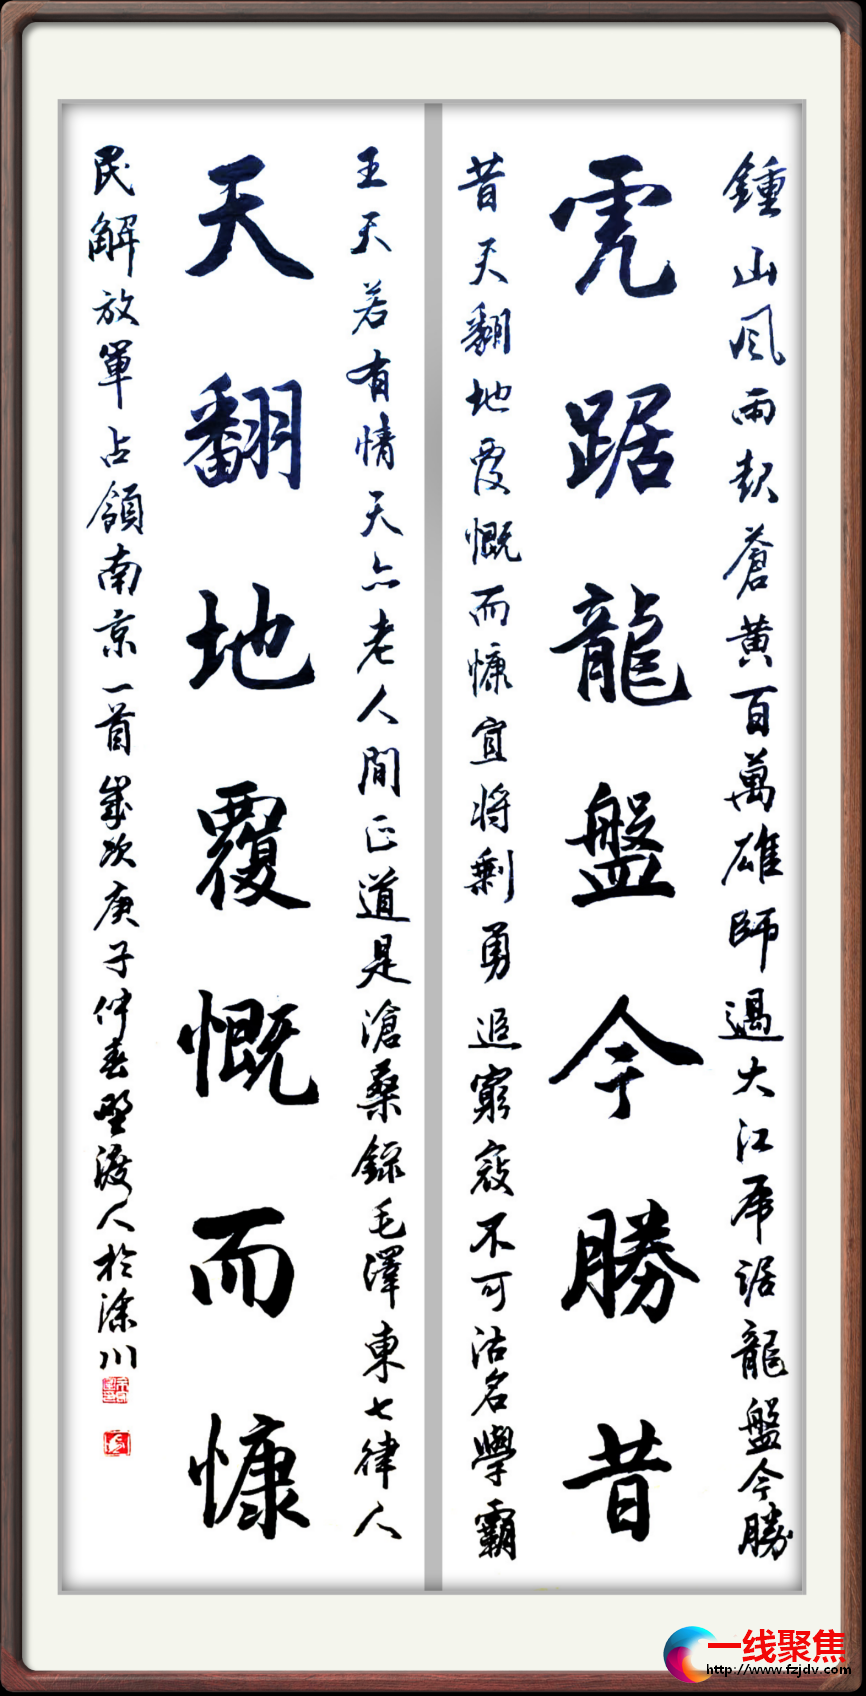 鍾山風雨起蒼黃百萬雄師過大江虎踞龍盤今勝
虎踞龍盤今勝昔
昔天翻地覆慨而慷宜將剩勇追窮寇不可沽名學霸
王天若有情天亦老人間正道是滄桑錄毛澤東七律人
天翻地覆慨而慷
民解放軍占領南京一首歲次庚子仲春野渡人於涂川
一线聚焦
http://www.fzjdv.com